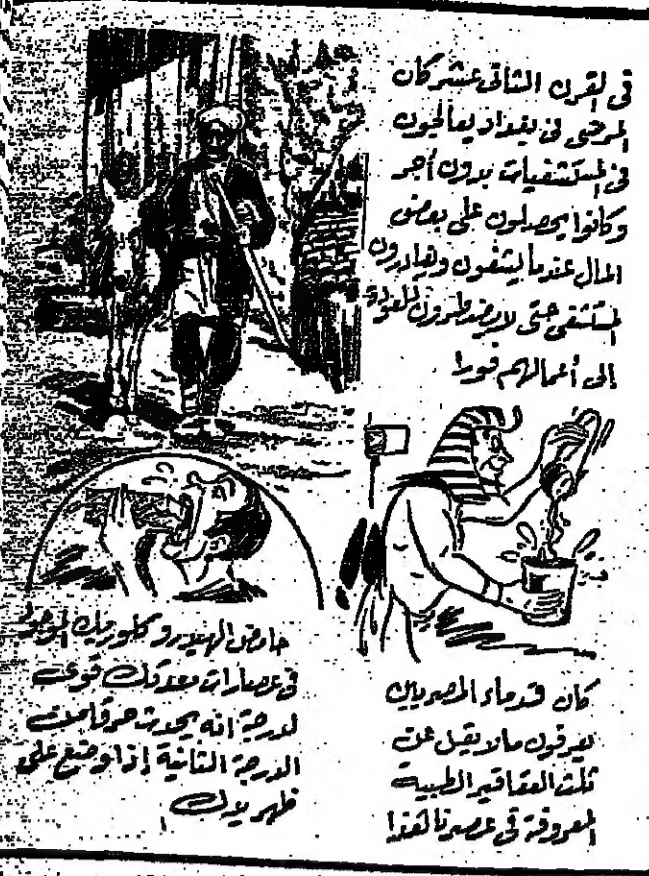 في القرن الثاني عشر كان
المرضى في بغداد يعالجون
في المستشفيات بدون أجر
وكانوا يحصلون على بعض
المال عندما يشفون ويغادرون
المستشفى حتى لا يضطرون للعودة
إلى أعمالهم فورا
كان قدماء المصريين
يعرفون مالا يقل عن
ثلث العقاقير الطبية
المعروفة في عصرنا هذا
حامض الهيدروكلوريك الموجود
في عصارات معدتك قوي
لدرجة انه يحدث حرقا من
الدرجة الثانية إذا وضع على
ظهر يدك